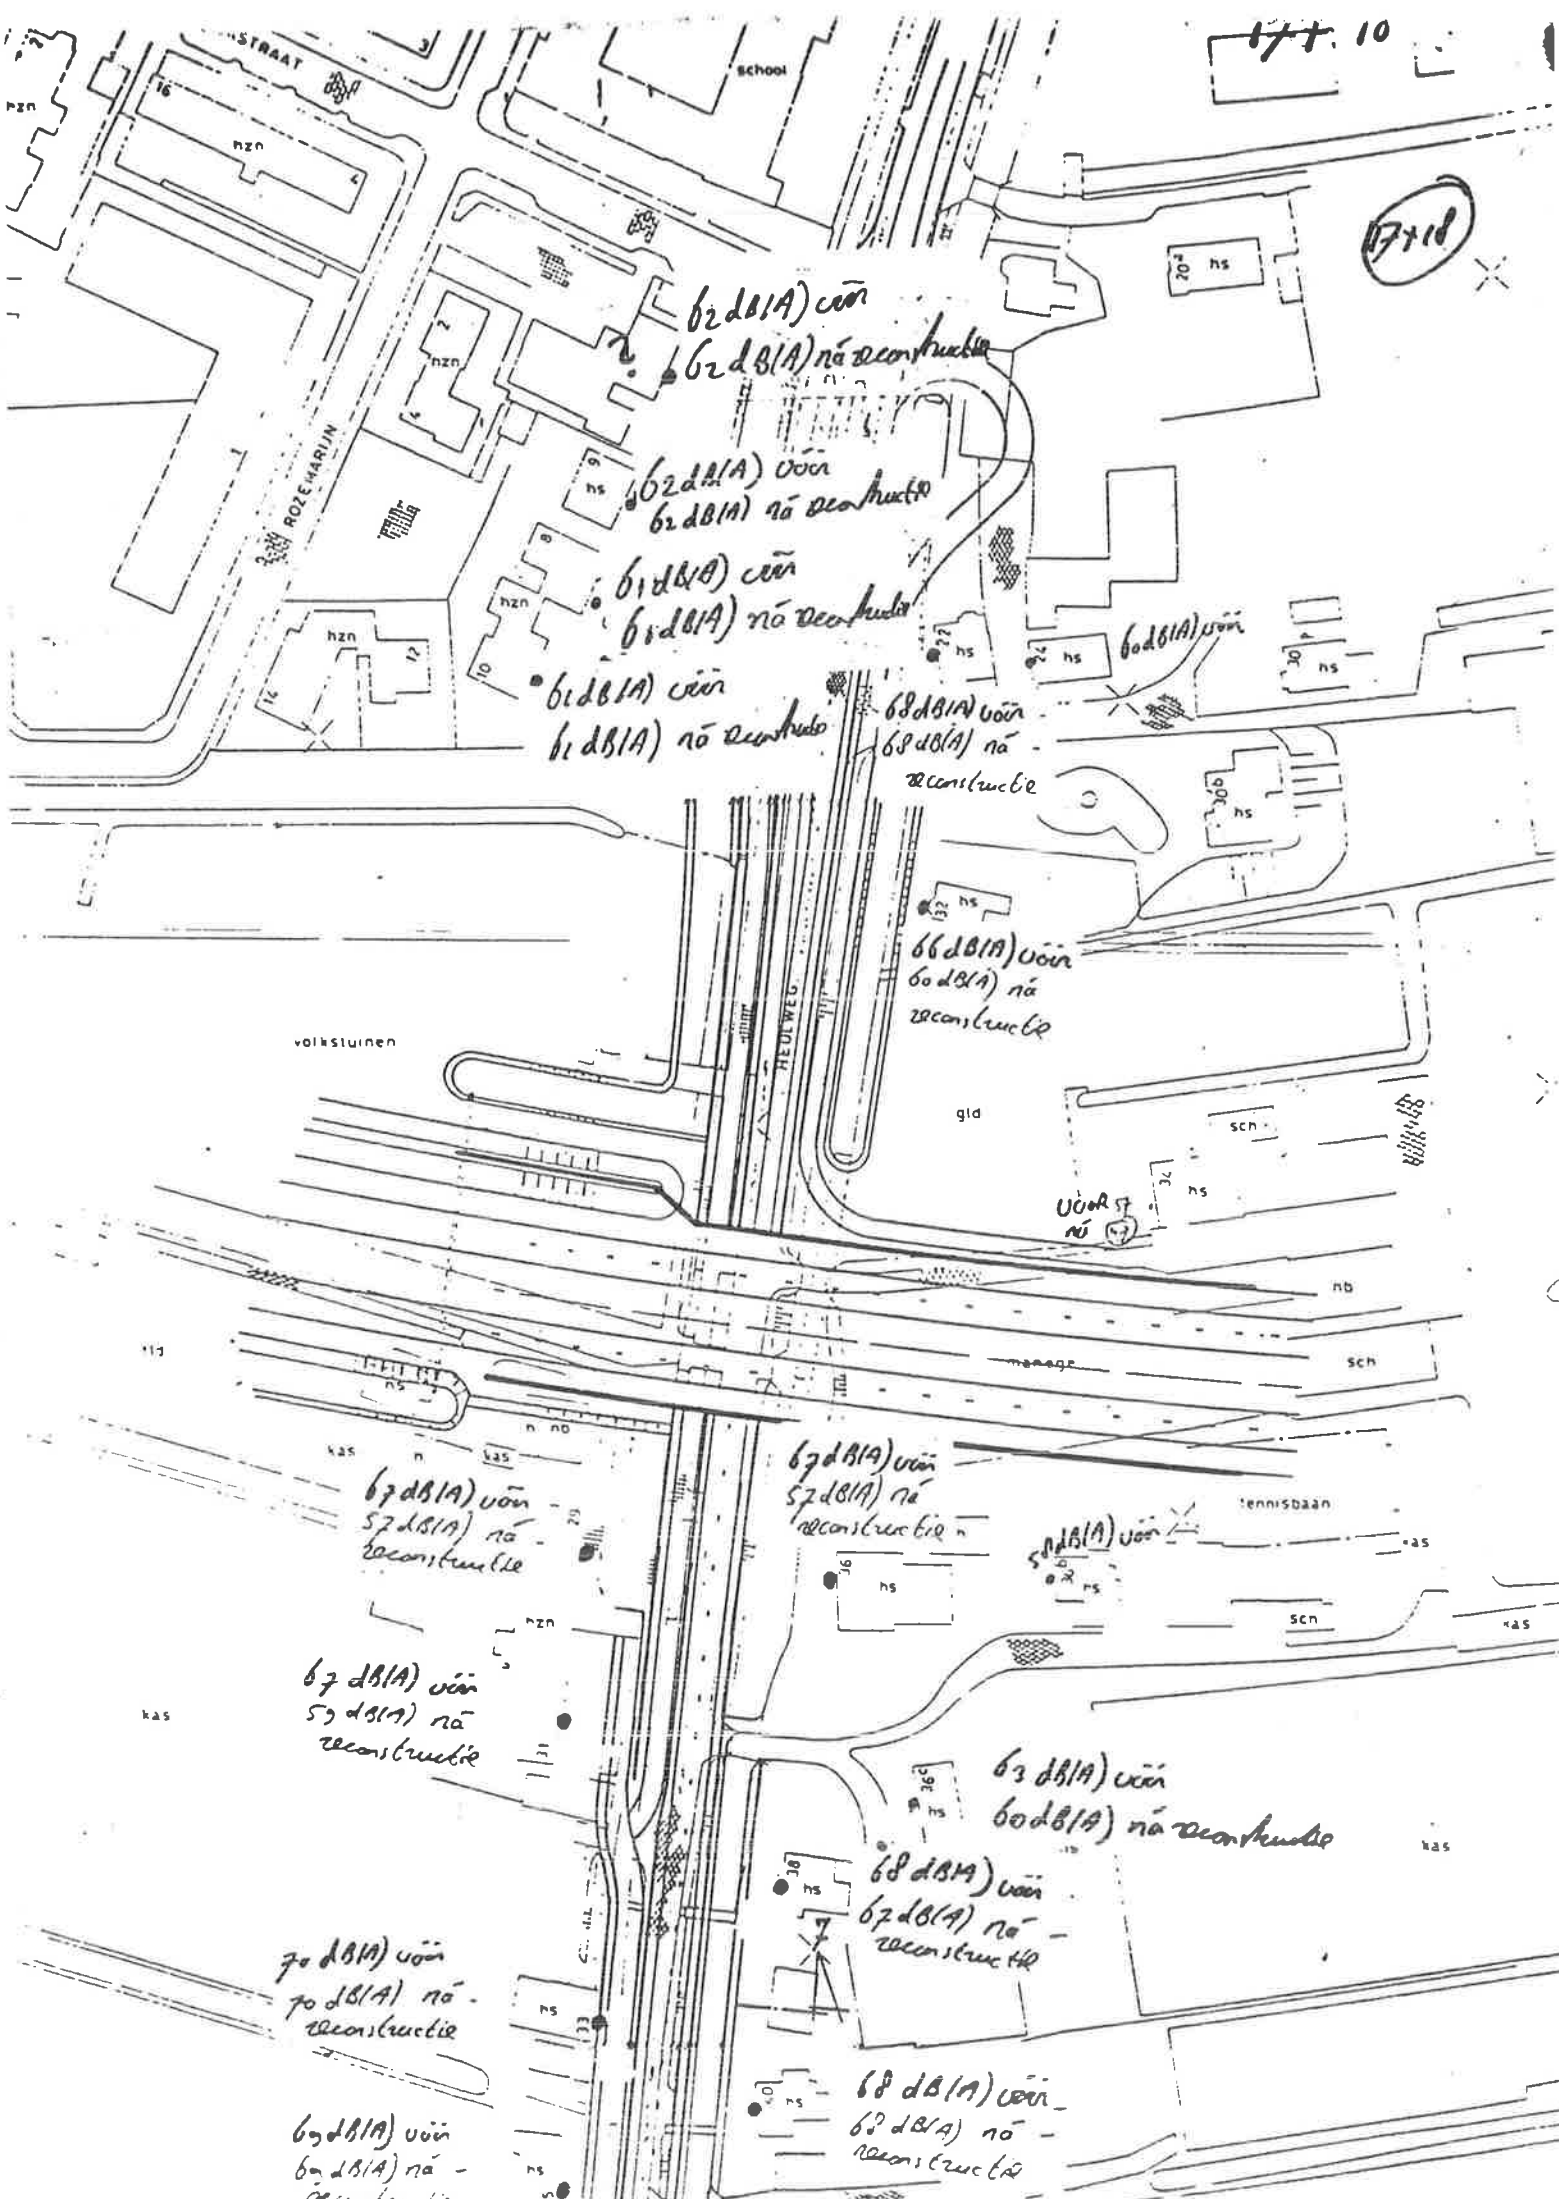 STRAAT
3
school
10
17+18
hzn
16
hzn
4
20a
hs
62 dB(A) vóór
62 dB(A) ná reconstructie
2
hzn
6
1
ROZEMARIJN
9
hs
62 dB(A) vóór
62 dB(A) ná reconstructie
8
hzn
10
61 dB(A) vóór
61 dB(A) ná reconstructie
hzn
12
14
61 dB(A) vóór
61 dB(A) ná reconstructie
22
hs
24
hs
60 dB(A) vóór
30a
hs
68 dB(A) vóór
68 dB(A) ná
reconstructie
30b
hs
132
hs
66 dB(A) vóór
60 dB(A) ná
reconstructie
HEULWEG
volkstuinen
gld
sch
34
hs
VÓÓR 57
ná 47
nb
manege
sch
hs
n
nb
kas
n
kas
67 dB(A) vóór
57 dB(A) ná
reconstructie
29
67 dB(A) vóór
57 dB(A) ná
reconstructie
tennisbaan
58 dB(A) vóór
kas
36
hs
hs
sch
kas
hzn
67 dB(A) vóór
59 dB(A) ná
reconstructie
31
kas
36c
hs
63 dB(A) vóór
60 dB(A) ná reconstructie
kas
38
hs
68 dB(A) vóór
67 dB(A) ná
reconstructie
70 dB(A) vóór
70 dB(A) ná
reconstructie
hs
33
40
hs
68 dB(A) vóór
68 dB(A) ná
reconstructie
69 dB(A) vóór
69 dB(A) ná
hs